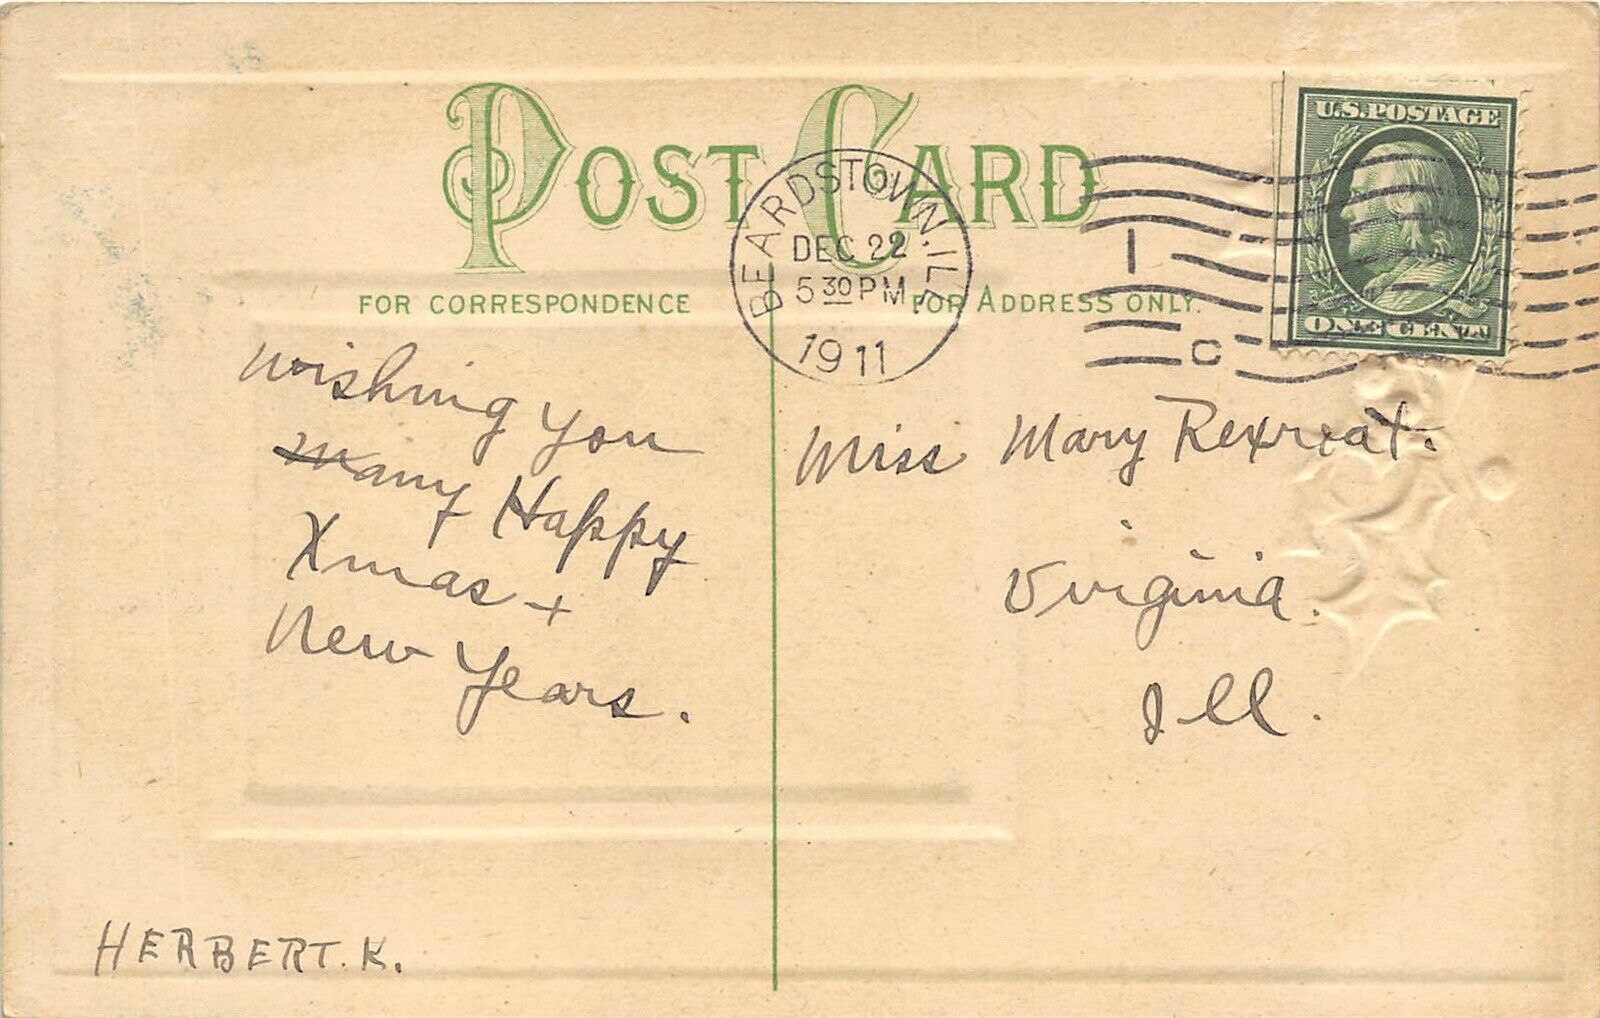 POST CARD
FOR CORRESPONDENCE
FOR ADDRESS ONLY.
BEARDSTOWN. ILL.
DEC 22
5 30 PM
1911
1
C
U.S. POSTAGE
ONE CENT
Wishing you
Many Happy
Xmas +
New Years.
HERBERT. K.
Miss Mary Rexroat.
Virginia.
Ill.